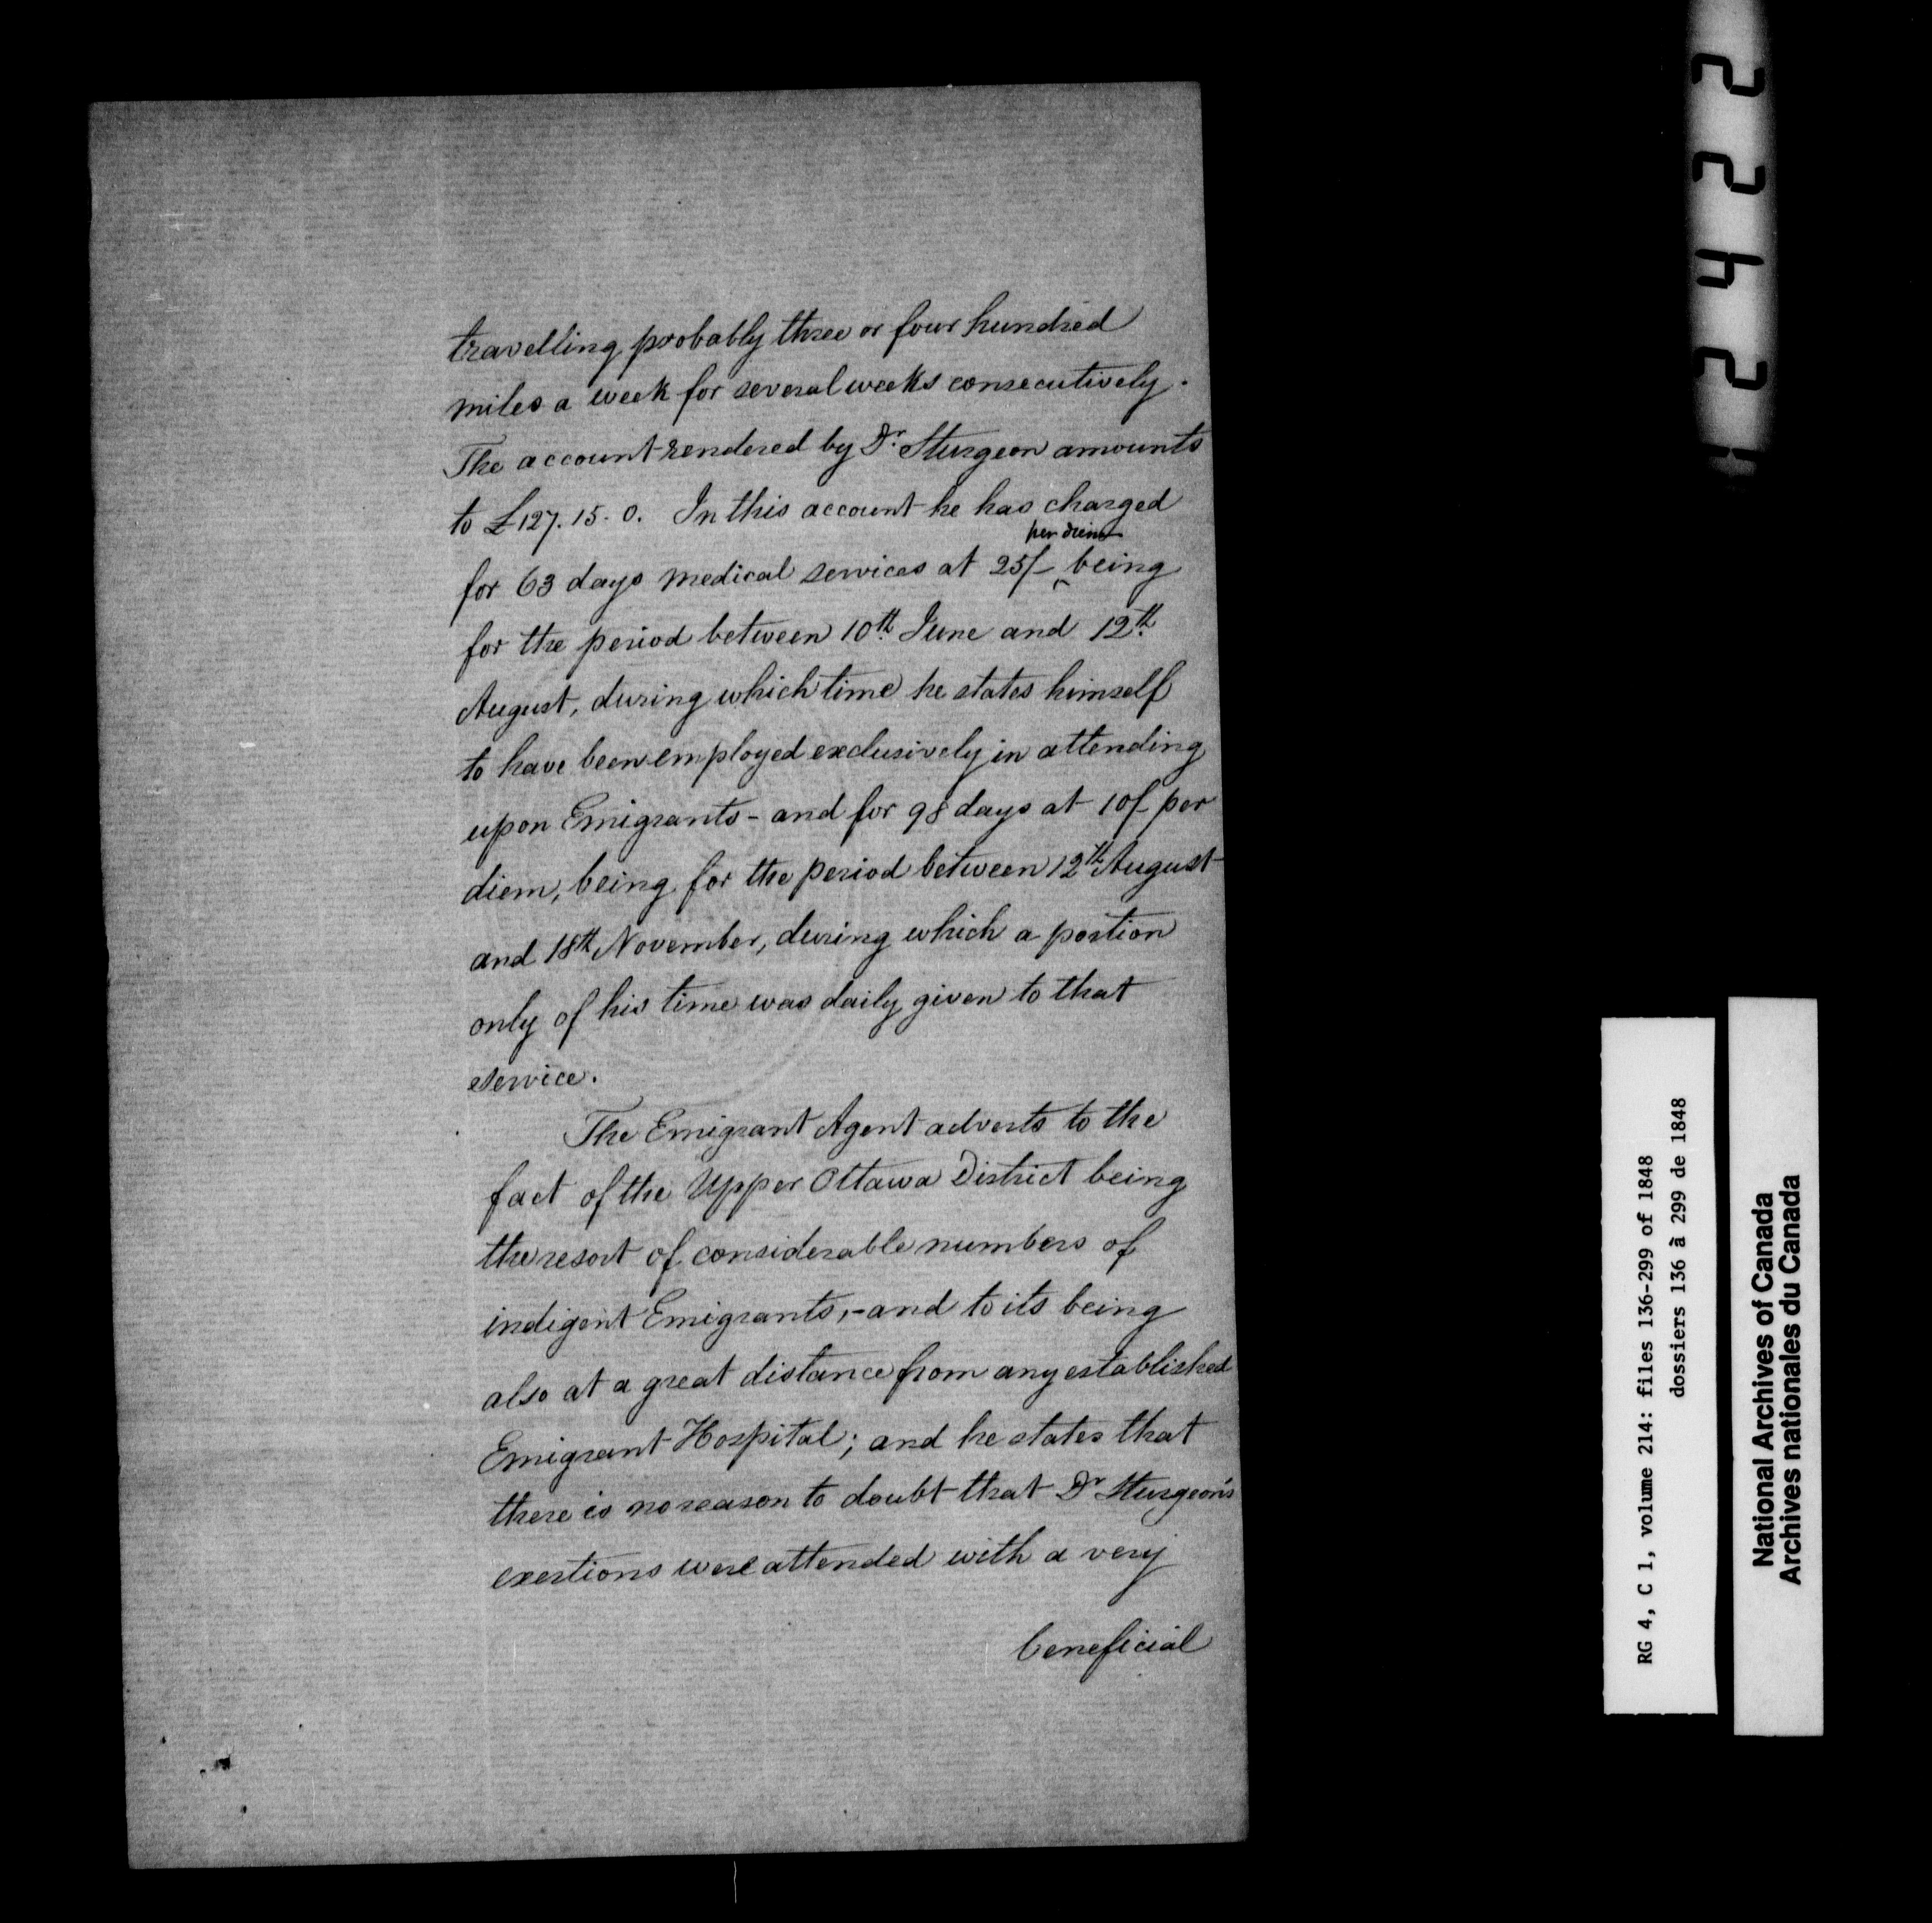 travelling probably three or four hundred
miles a week for several weeks consecutively.
The account rendered by Dr. Sturgeon amounts
to £127.15.0. In this account he has charged
per diem
for 63 days medical services at 25/- ^ being
for the period between 10th June and 12th
August, during which time he states himself
to have been employed exclusively in attending
upon Emigrants - and for 98 days at 10/- per
diem, being for the period between 12th August
and 18th November, during which a portion
only of his time was daily given to that
service.
The Emigrant Agent adverts to the
fact of the Upper Ottawa District being
the resort of considerable numbers of
indigent Emigrants, - and to its being
also at a great distance from any established
Emigrant Hospital; and he states that
there is no reason to doubt that Dr Sturgeon's
exertions were attended with a very
beneficial
RG 4, C 1, volume 214: files 136-299 of 1848
dossiers 136 à 299 de 1848
National Archives of Canada
Archives nationales du Canada
2 2 4 2